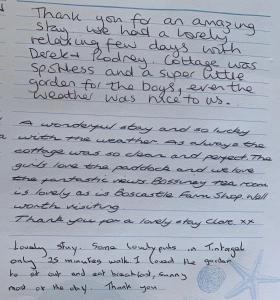 Thank you for an amazing
stay we had a lovely
relaxing few days with
Derek + Rodney. Cottage was
spotless and a super little
garden for the boys, even the
weather was nice to us.
A wonderful stay and so lucky
with the weather. As always the
cottage was so clean and perfect. The
girls love the paddock and we love
the fantastic views. Bossiney tea room
is lovely as is Boscastle Farm Shop. Well
worth visiting
Thank you for a lovely stay Clare xx
Lovely stay. Some lovely pubs in Tintagel
only 25 minutes walk. I loved the garden
to sit out and eat breakfast, sunny
most of the day. Thank you